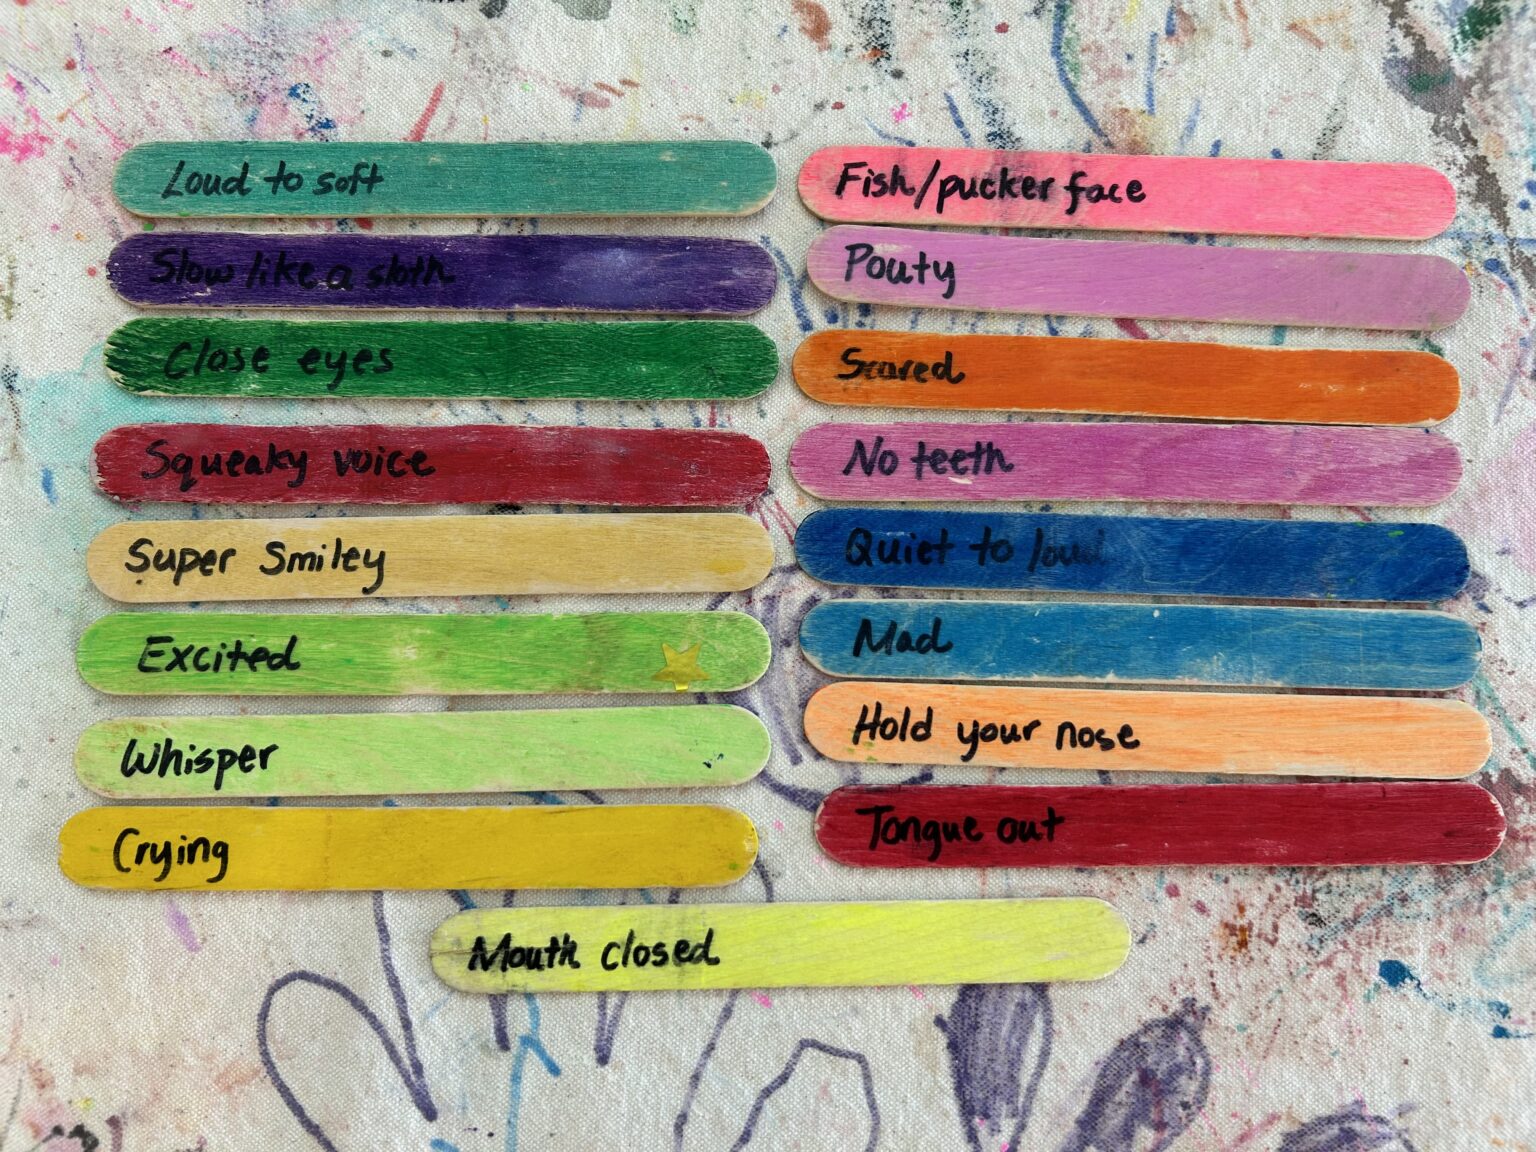 Loud to soft
Slow like a sloth
Close eyes
Squeaky voice
Super Smiley
Excited
Whisper
Crying
Fish/pucker face
Pouty
Scared
No teeth
Quiet to loud
Mad
Hold your nose
Tongue out
Mouth closed